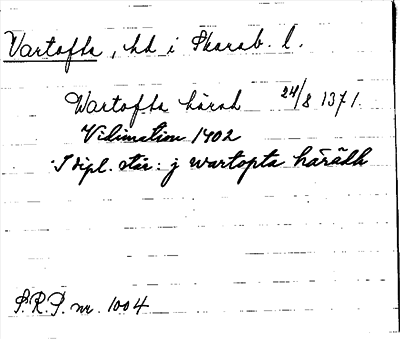 Vartofta, hd i Skarab. l.
Wartofta härad 24/8 1371.
Vidimation 1402
I dipl. står: j wartopta härädh
S.R.P. nr. 1004